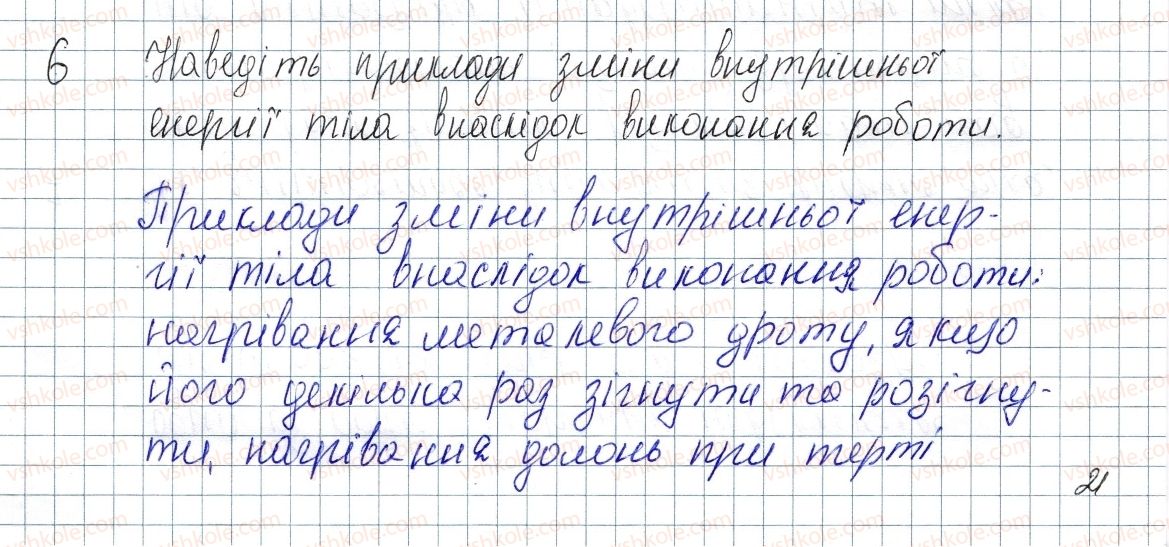 6 Наведіть приклади зміни внутрішньої
енергії тіла внаслідок виконання роботи.
Приклади зміни внутрішньої енер-
гії тіла внаслідок виконання роботи:
нагрівання металевого дроту, якщо
його декілька раз зігнути та розігну-
ти, нагрівання долонь при терті
21